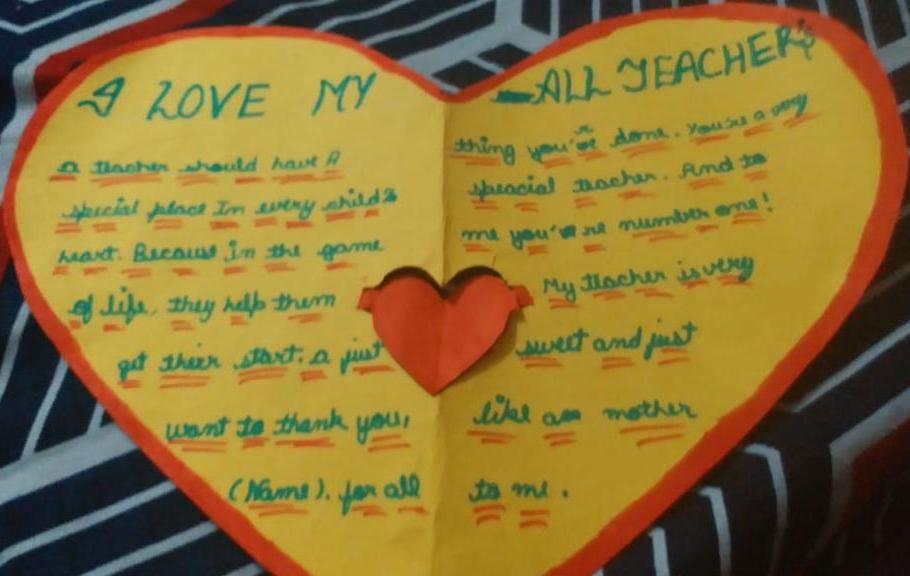 I LOVE MY
a teacher should have A
special place In every child's
heart. Because in the game
of life, they help them
get their start. a just
want to thank you,
(Name). for all
ALL TEACHER's
thing you've done. You're a very
speacial teacher. And to
me you're number one!
My teacher is very
sweet and just
like a mother
to me.